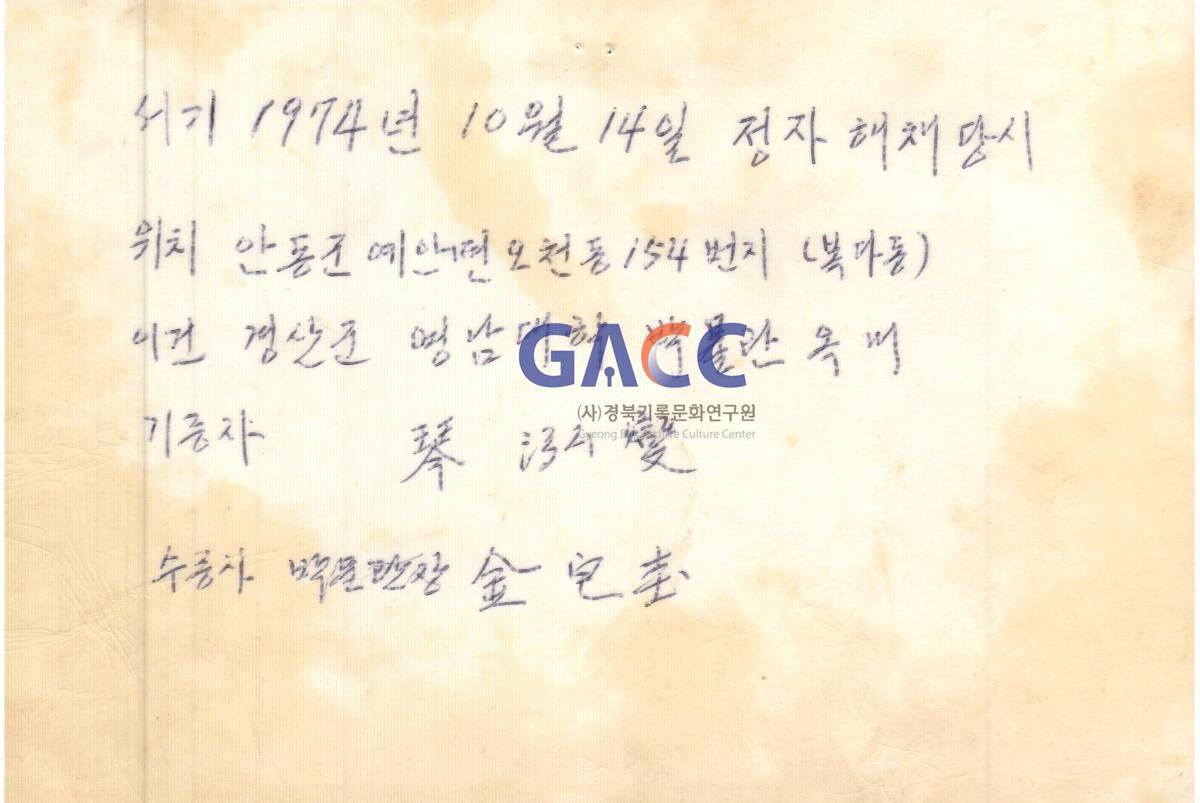 서기 1974년 10월 14일 정자 해채당시
위치 안동군 예안면 오천동 154번지 (복다동)
이건 경산군 영남대학 박물관 옥내
GACC
(사)경북기록문화연구원
Culture Center
기증자 琴
수증자 박물관장 金